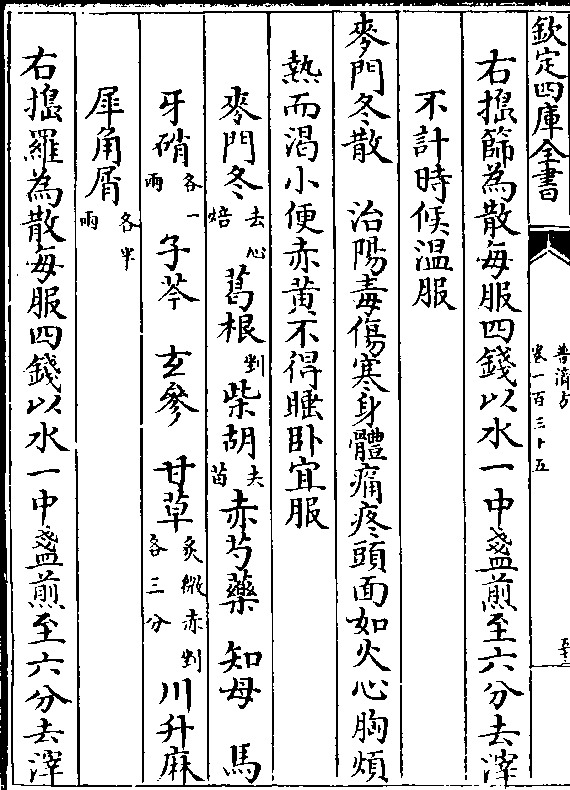 欽定四庫全書
普濟方
卷一百三十五
右搗篩為散每服四錢以水一中盞煎至六分去滓
不計時候溫服
麥門冬散 治陽毒傷寒身體痛疼頭面如火心胸煩
熱而渴小便赤黄不得睡卧宜服
麥門冬去心焙 葛根剉 柴胡去苗 赤芍藥 知母 馬
牙硝各一兩 子芩 玄參 甘草炙微赤剉各三分 川升麻
犀角屑各半兩
右搗羅為散每服四錢以水一中盞煎至六分去滓